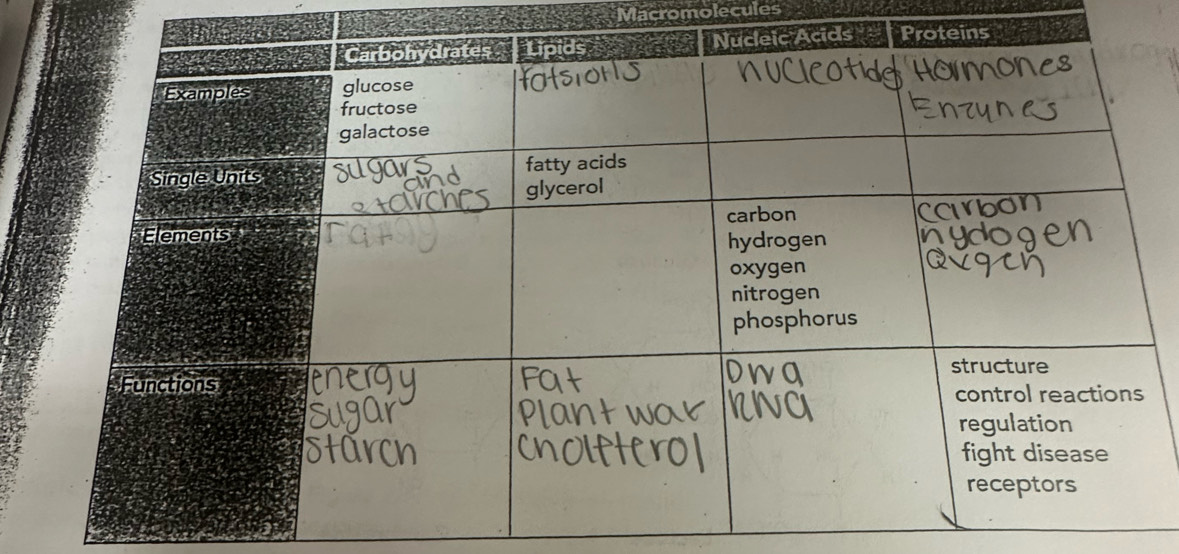 Macromolecules
Carbohydrates Lipids Nucleic Acids Proteins
Examples
glucose
fructose
galactose
nucleotides
Hormones
Enzynes
Single Units
sugars
and
starches
fatty acids
glycerol
Elements
carbon
hydrogen
oxygen
nitrogen
phosphorus
carbon
hydogen
Functions
energy
sugar
starch
Fat
Plant wax
DNA
RNA
structure
control reactions
regulation
fight disease
receptors